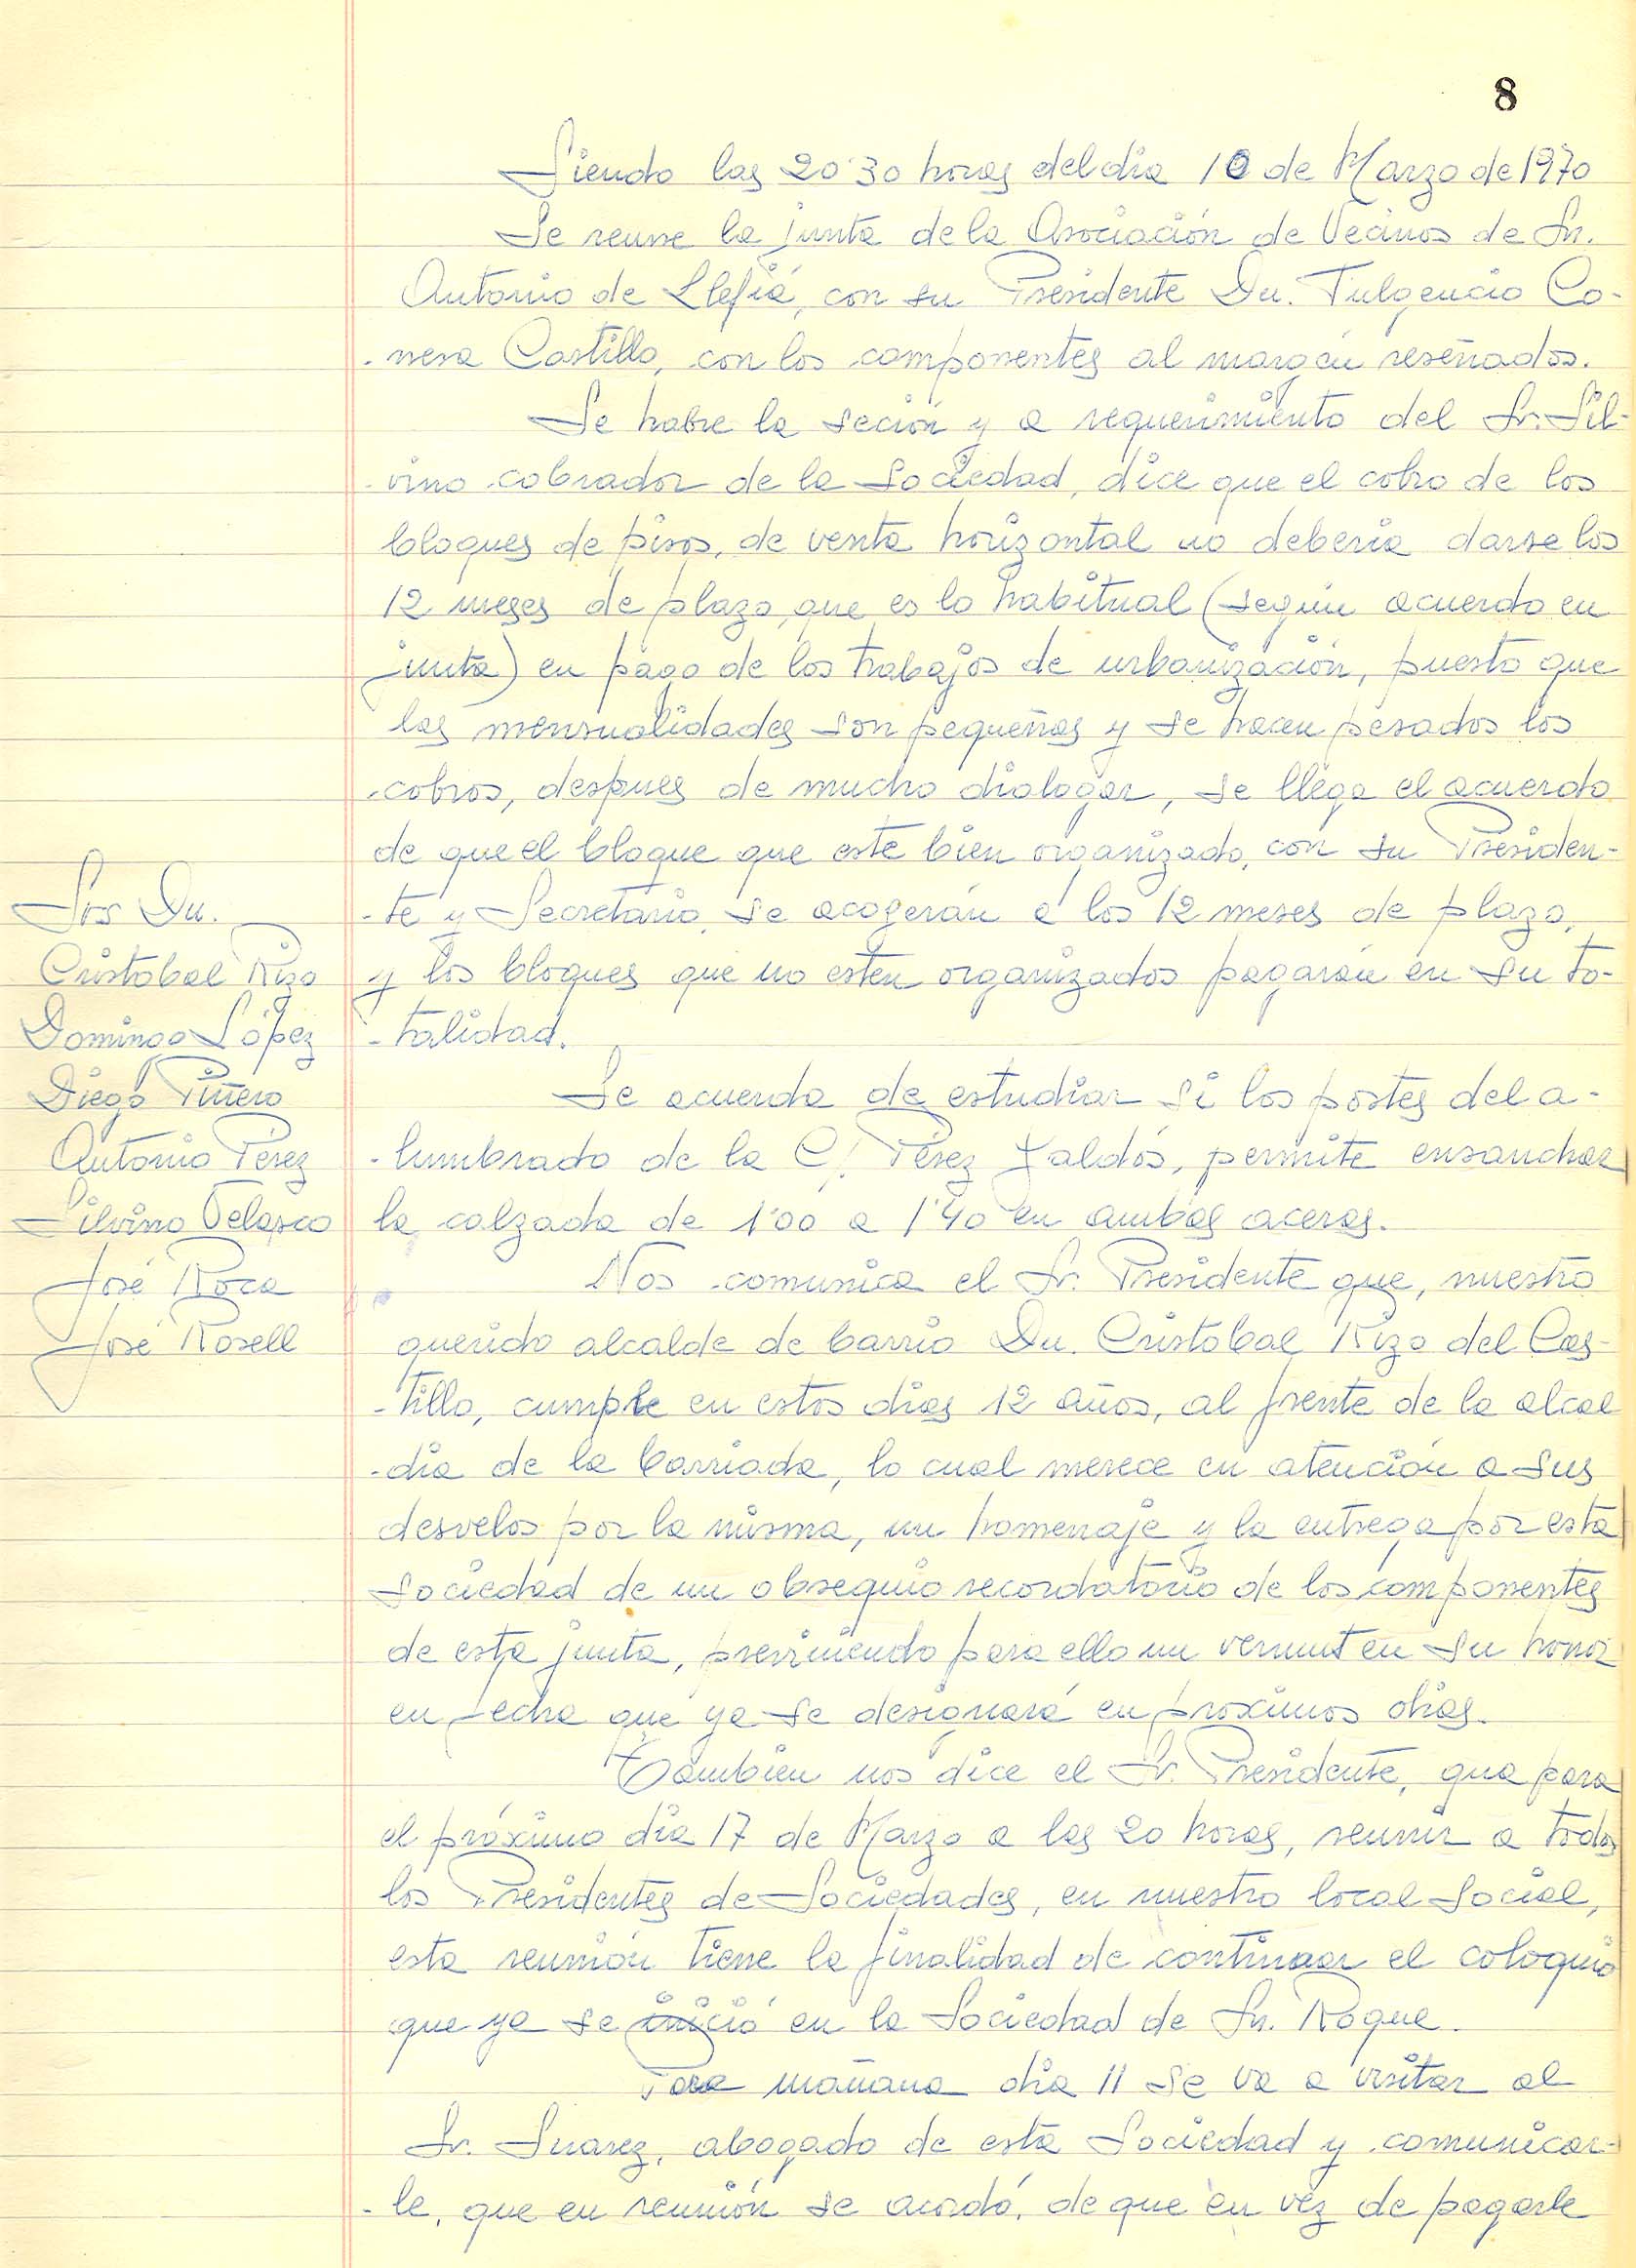 8
Siendo las 20'30 horas del dia 10 de Marzo de 1970
Se reune la junta de la Asociación de Vecinos de Sn.
Antonio de Llefiá, con su Presidente Dn. Fulgencio Co-
-nesa Castillo, con los componentes al margen reseñados.
Se habre la seción y a requerimiento del Sr. Sil-
-vino cobrador de la Sociedad, dice que el cobro de los
bloques de pisos, de venta horizontal no deberia darse los
12 meses de plazo, que es lo habitual (segun acuerdo en
junta) en pago de los trabajos de urbanización, puesto que
las mensualidades son pequeñas y se hacen pesados los
cobros, despues de mucho dialogar, se llega el acuerdo
de que el bloque que este bien organizado, con su Presiden-
-te y Secretario, se acogerán a los 12 meses de plazo,
y los bloques que no estén organizados pagarán en su to-
-talidad.
Srs Dn.
Cristobal Rizo
Domingo López
Diego Piñero
Antonio Pérez
Silvino Velasco
José Roca
José Rosell
Se acuerda de estudiar si los postes del a-
-lumbrado de la C/. Pérez Galdós, permite ensanchar
la calzada de 1'00 a 1'40 en ambas aceras.
Nos comunica el Sr. Presidente que, nuestro
querido alcalde de barrio Dn. Cristobal Rizo del Cas-
-tillo, cumple en estos dias 12 años, al frente de la alcal
-dia de la barriada, lo cual merece en atención a sus
desvelos por la misma, un homenaje y la entrega por esta
Sociedad de un obsequio recordatorio de los componentes
de esta junta, previniendo para ello un vermut en su honor
en fecha que ya se designará en proximos dias.
Tambien nos dice el Sr. Presidente, qua para
el próximo dia 17 de Marzo a las 20 horas, reunir a todos
los Presidentes de Sociedades, en nuestro local Social,
esta reunión tiene la finalidad de continuar el coloquio
que ya se inició en la Sociedad de Sn. Roque.
Para mañana dia 11 se va a visitar al
Sr. Suarez, abogado de esta Sociedad y comunicar-
-le, que en reunión se acordó, de que en véz de pagarle